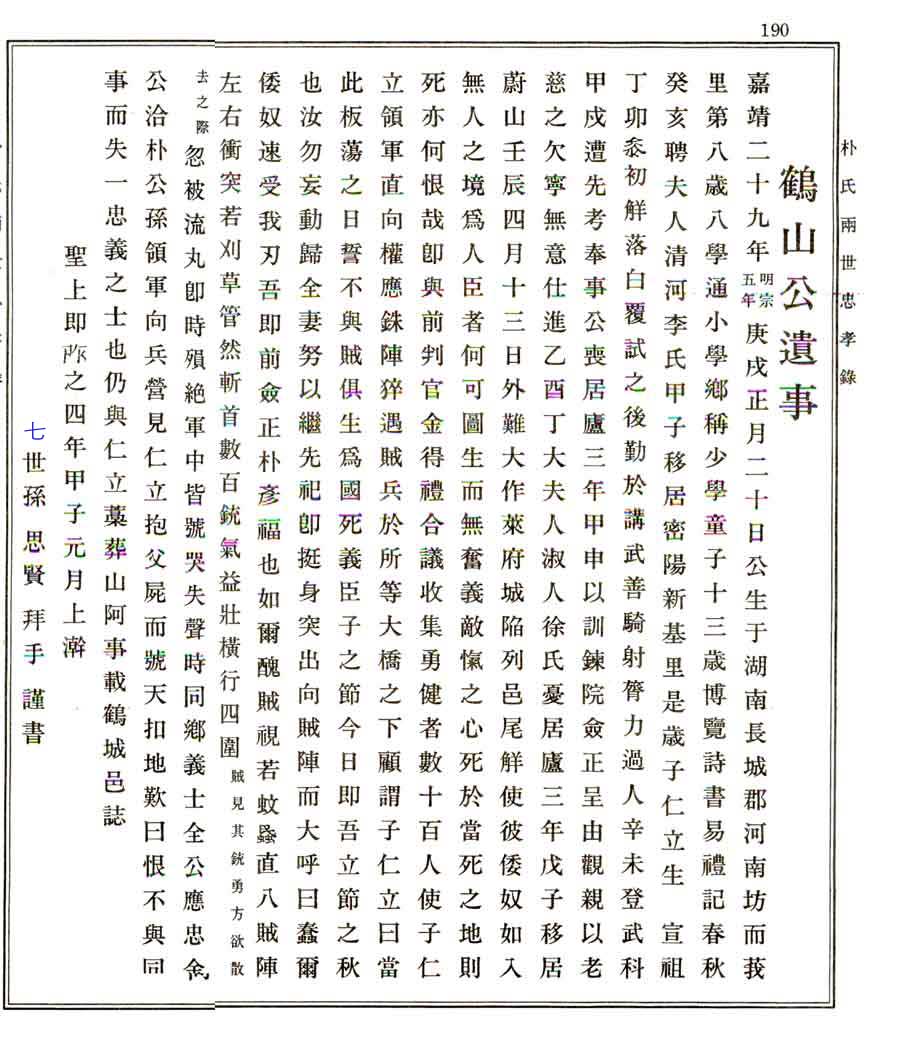 190
朴氏兩世忠孝錄
鶴山公遺事
嘉靖二十九年明宗五年庚戌正月二十日公生于湖南長城郡河南坊而莪
里第八歲八學通小學鄕稱少學童子十三歲博覽詩書易禮記春秋
癸亥聘夫人清河李氏甲子移居密陽新基里是歲子仁立生 宣祖
丁卯忝初鮮落白覆試之後勤於講武善騎射膂力過人辛未登武科
甲戌遭先考奉事公喪居廬三年甲申以訓鍊院僉正呈由觀親以老
慈之欠寧無意仕進乙酉丁大夫人淑人徐氏憂居廬三年戊子移居
蔚山壬辰四月十三日外難大作萊府城陷列邑尾觧使彼倭奴如入
無人之境爲人臣者何可圖生而無奮義敵愾之心死於當死之地則
死亦何恨哉卽與前判官金得禮合議收集勇健者數十百人使子仁
立領軍直向權應銖陣猝遇賊兵於所等大橋之下顧謂子仁立曰當
此板蕩之日誓不與賊俱生爲國死義臣子之節今日即吾立節之秋
也汝勿妄動歸全妻努以繼先祀卽挺身突出向賊陣而大呼曰蠢爾
倭奴速受我刃吾即前僉正朴彥福也如爾醜賊視若蚊蝨直八賊陣
左右衝突若刈草管然斬首數百銃氣益壯橫行四圍賊見其銃勇方欲散
去之際忽被流丸卽時殞絶軍中皆號哭失聲時同鄕義士全公應忠金
公洽朴公孫領軍向兵營見仁立抱父屍而號天扣地歎曰恨不與同
事而失一忠義之士也仍與仁立藁葬山阿事載鶴城邑誌
聖上即阼之四年甲子元月上澣
七世孫 思賢 拜手 謹書